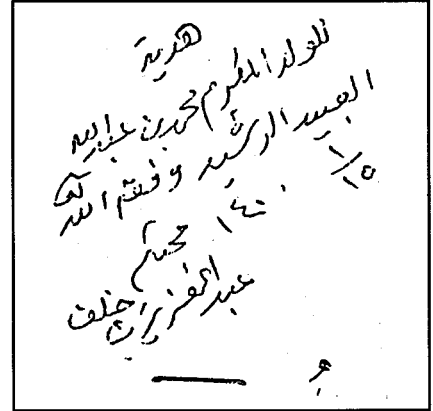 هدية
للولد المكرم محمد بن عبدالله
العبيد الرشيد وفقه الله
١٤٠٠ ١/١٥
محبكم
عبدالعزيز بن خلف